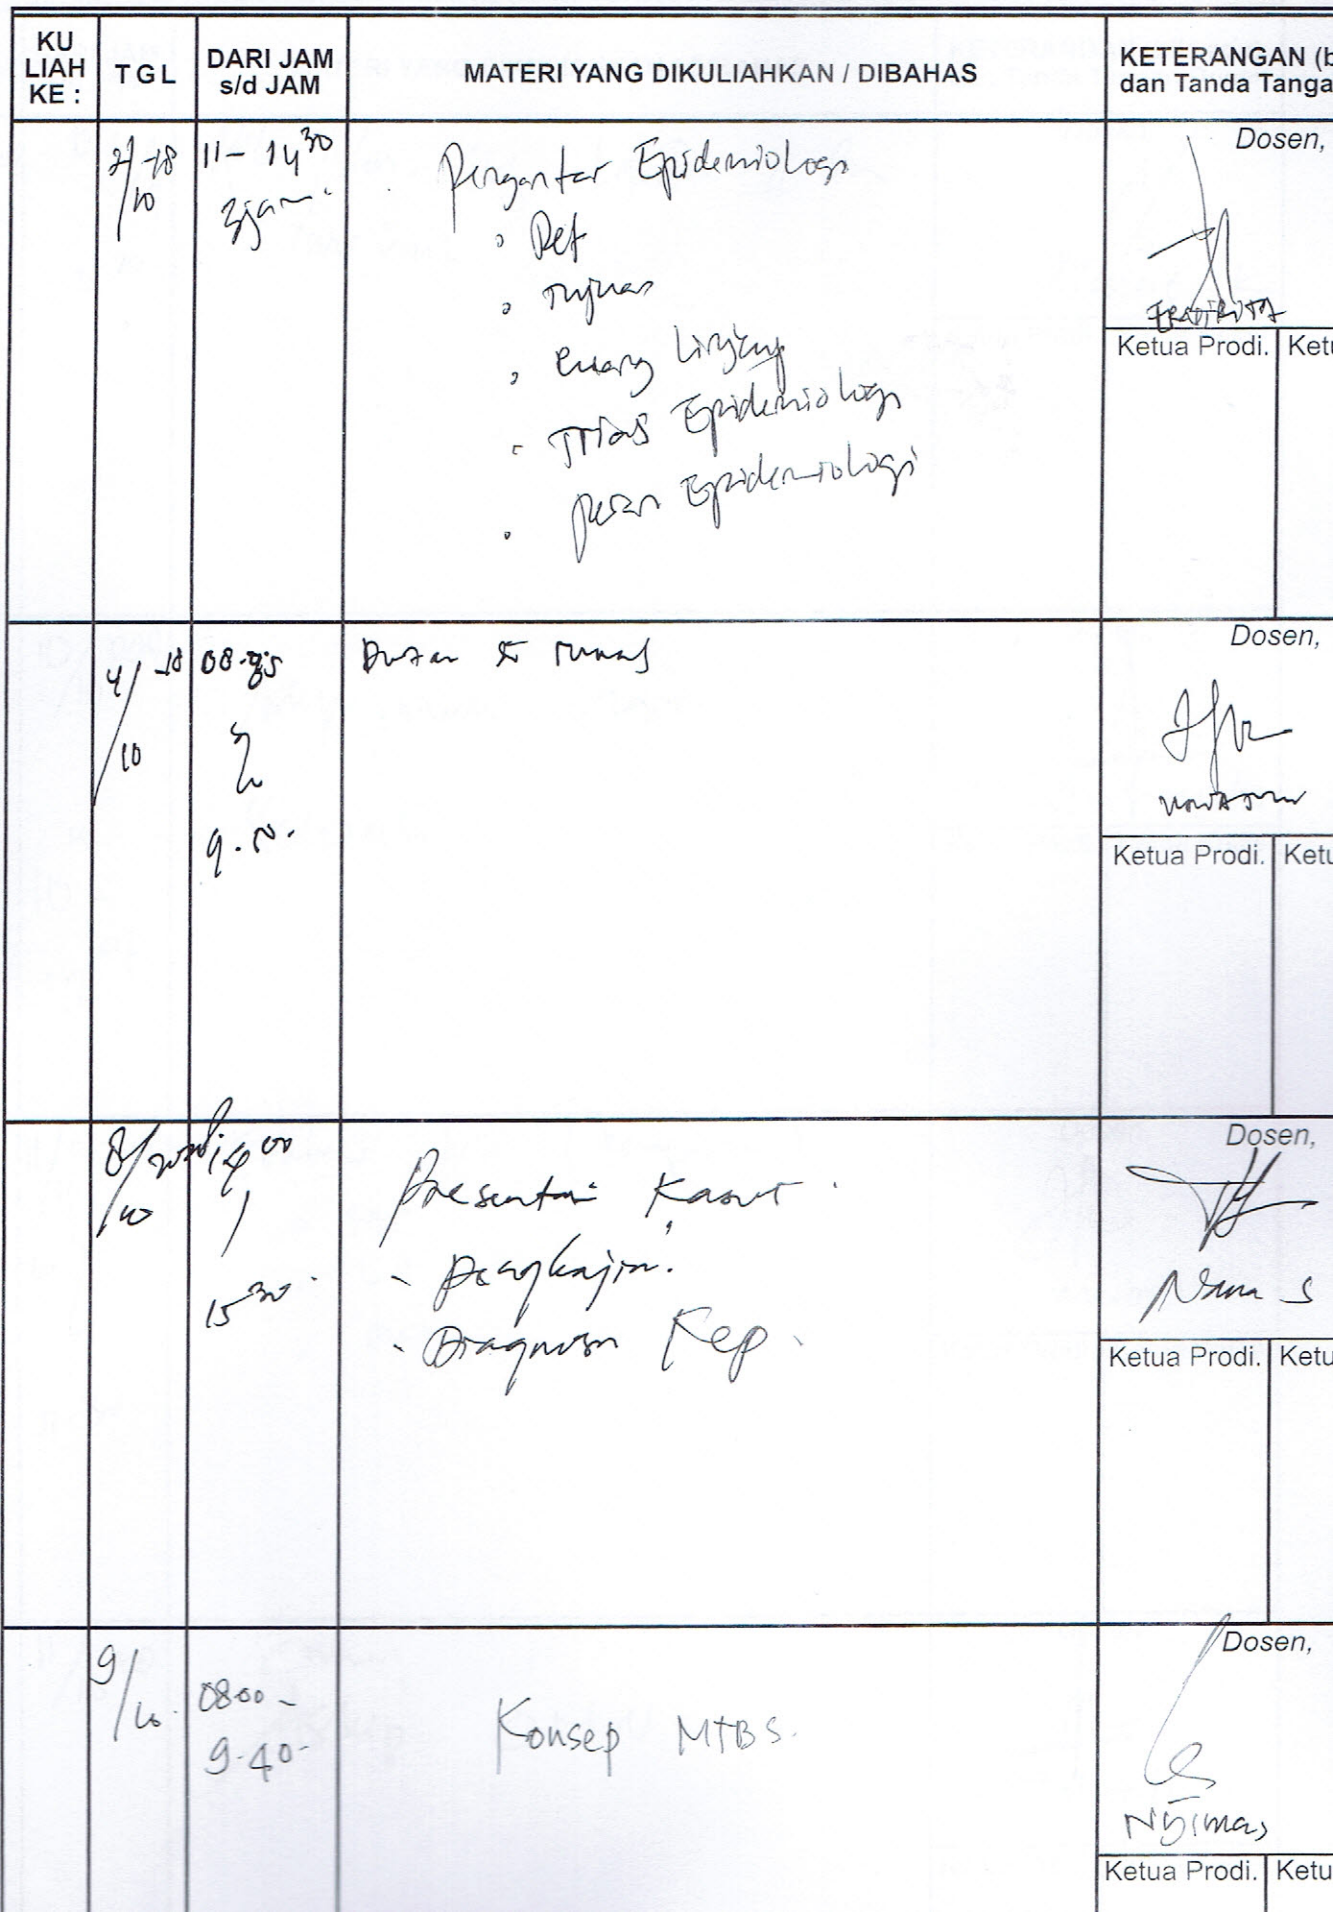 KU
LIAH
KE :
TGL
DARI JAM
s/d JAM
MATERI YANG DIKULIAHKAN / DIBAHAS
KETERANGAN (b
dan Tanda Tanga
2/10-18
11 - 14 30
3 jam.
Pengantar Epidemiologi
Def
Tujuan
Ruang Lingkup
- Trias Epidemiologi
. peran Epidemiologi
Dosen,
Ketua Prodi.
Ketu
4/10 -18
Dosen,
Ketua Prodi.
Ketu
8/10
14 00
15 30
Presentasi Kasus
- Pengkajian.
- Diagnosa Kep.
Dosen,
Nana S
Ketua Prodi.
Ketu
9/10
0800 -
9.40 -
Konsep MTBS.
Dosen,
Ketua Prodi.
Ketu